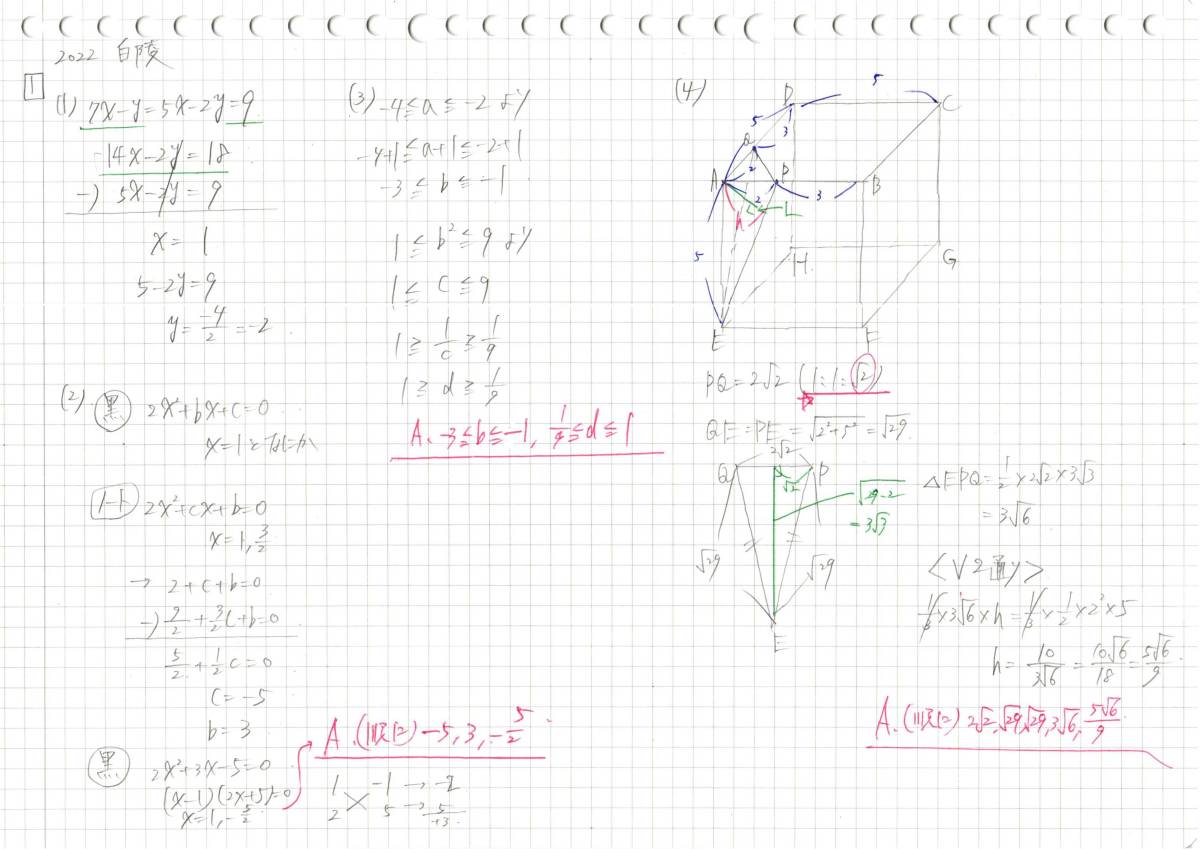 2022 白陵
1
(1) 7x-y=5x-2y=9
14x-2y=18
-) 5x-2y=9
x=1
5-2y=9
y=-4/2=-2
(2) 黒 2x²+bx+c=0
x=1となにか
ノート 2x²+cx+b=0
x=1, 3/2
→ 2+c+b=0
-) 9/2+3/2c+b=0
5/2+1/2c=0
c=-5
b=3
黒 2x²+3x-5=0
(x-1)(2x+5)=0
x=1, -5/2
A. (順に) -5, 3, -5/2
1 -1 → -2
2 5 → 5
+3
(3) -4≦a≦-2より
-4+1≦a+1≦-2+1
-3≦b≦-1
1≦b²≦9より
1≦c≦9
1≧1/c≧1/9
1≧d≧1/9
A. -3≦b≦-1, 1/9≦d≦1
(4)
D 5 C
5 3
Q
2
A P B
2 3
h L
5
H G
E F
PQ=2√2 (1:1:√2)
QE=PE=√2²+5²=√29
2√2
Q √2 P
√29-2
=3√3
√29 √29
E
△EPQ=1/2×2√2×3√3
=3√6
<V2通り>
1/3×3√6×h=1/3×1/2×2²×5
h=10/3√6=10√6/18=5√6/9
A. (順に) 2√2, √29, √29, 3√6, 5√6/9